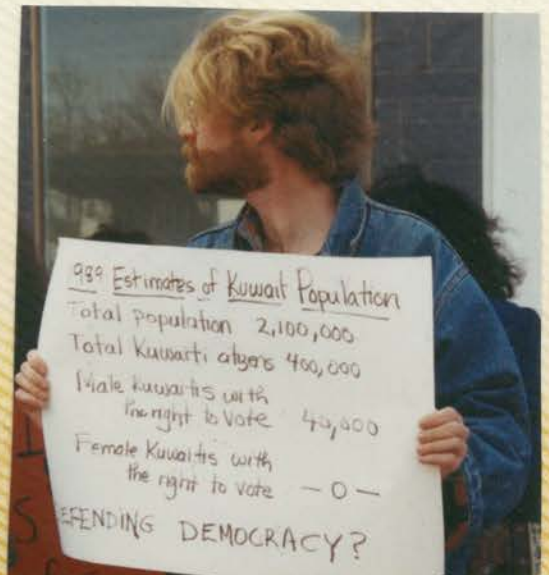 989 Estimates of Kuwait Population
Total population 2,100,000
Total Kuwaiti citizens 400,000
Male Kuwaitis with
the right to vote 40,000
Female Kuwaitis with
the right to vote — 0 —
EFENDING DEMOCRACY?